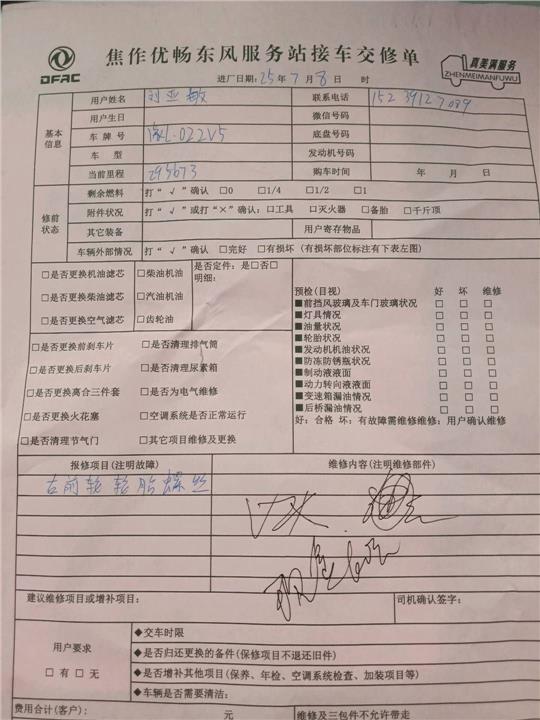 DFAC
焦作优畅东风服务站接车交修单
真美满服务
ZHENMEIMANFUWU
进厂日期:25年7月8日 时
基本信息
用户姓名 刘亚敏 联系电话
用户生日 微信号码
车牌号 底盘号码
车型 发动机号码
当前里程 295673 购车时间 年 月 日
修前状态
剩余燃料 打“√”确认 □0 □1/4 □1/2 □1
附件状况 打“√”或打“×”确认:□工具 □灭火器 □备胎 □千斤顶
其它装备 用户寄存物品
车辆外部情况 打“√”确认 □完好 □有损坏(有损坏部位标注有下表左图)
□是否更换机油滤芯 □柴油机油 是否定件:是□否□
明细:
□是否更换柴油滤芯 □汽油机油
□是否更换空气滤芯 □齿轮油
预检(目视) 好 坏 维修
■前挡风玻璃及车门玻璃状况 □ □ □
■灯具情况 □ □ □
■油量状况 □ □ □
■轮胎状况 □ □ □
■发动机机油情况 □ □ □
■防冻防锈瓶状况 □ □ □
■制动液液面 □ □ □
■动力转向液液面 □ □ □
■变速箱漏油情况 □ □ □
■后桥漏油情况 □ □ □
好:合格 坏:有故障需维修维修:用户确认维修
□是否更换前刹车片 □是否清理排气筒
□是否更换后刹车片 □是否清理尿素箱
□是否更换离合三件套 □是否为电气维修
□是否更换火花塞 □空调系统是否正常运行
□是否清理节气门 □其它项目维修及更换
报修项目(注明故障) 维修内容(注明维修部件)
右前轮轮胎螺丝
建议维修项目或增补项目: 司机确认签字:
用户要求
□有□无
◆交车时限
◆是否归还更换的备件(保修项目不退还旧件)
◆是否增补其他项目(保养、年检、空调系统检查、加装项目等)
◆车辆是否需要清洁:
费用合计(客户): 元 维修及三包件不允许带走